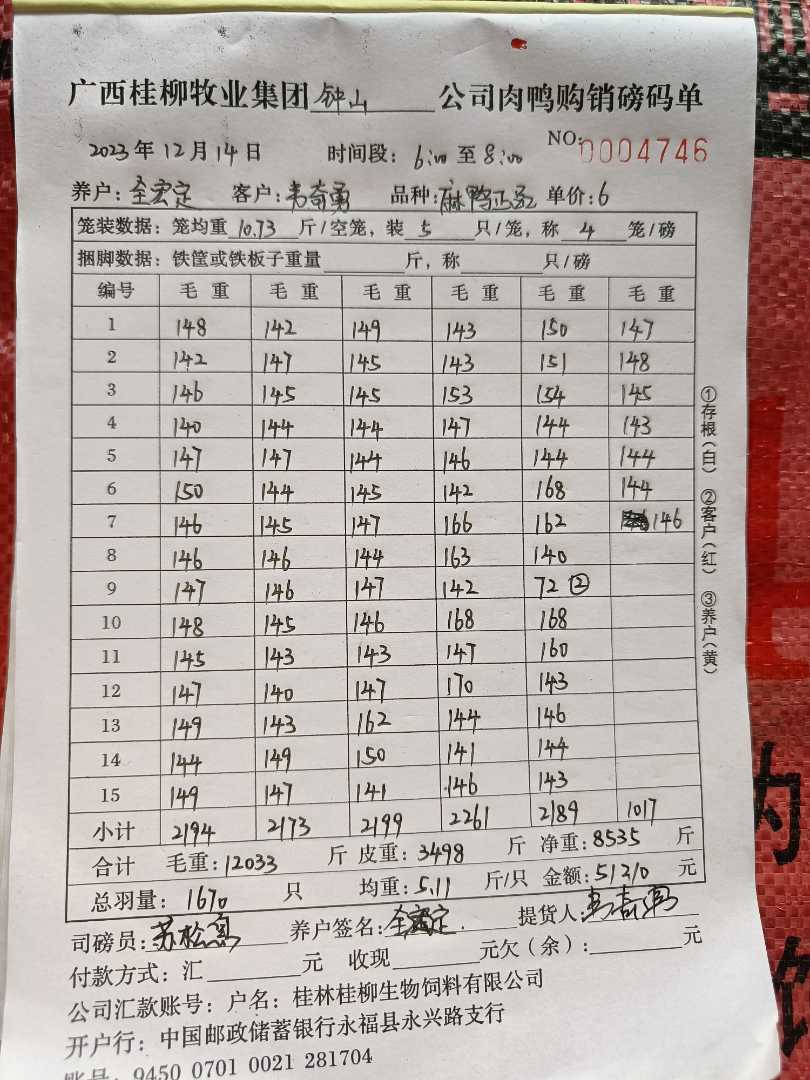 广西桂柳牧业集团钟山公司肉鸭购销磅码单
2023年12月14日 时间段：6:00至8:00 NO:0004746
养户：全宏定 客户：韦奇勇 品种：麻鸭正品 单价：6
笼装数据：笼均重10.73斤/空笼，装5只/笼，称4笼/磅
捆脚数据：铁筐或铁板子重量 斤，称 只/磅
编号 毛重 毛重 毛重 毛重 毛重 毛重
1 148 142 149 143 150 147
2 142 147 145 143 151 148
3 146 145 145 153 154 145
4 140 144 144 147 144 143
5 147 147 144 146 144 144
6 150 144 145 142 168 144
7 146 145 147 166 162 146
8 146 146 144 163 140
9 147 146 147 142 72②
10 148 145 146 168 168
11 145 143 143 147 160
12 147 140 147 170 143
13 149 143 162 144 146
14 144 149 150 141 144
15 149 147 141 146 143
小计 2194 2173 2199 2261 2189 1017
合计 毛重：12033斤 皮重：3498斤 净重：8535斤
总羽量：1670只 均重：5.11斤/只 金额：51210元
司磅员：苏松 养户签名：全宏定 提货人：韦奇勇
付款方式：汇 元 收现 元欠（余）： 元
公司汇款账号：户名：桂林桂柳生物饲料有限公司
开户行：中国邮政储蓄银行永福县永兴路支行
账号：9450 0701 0021 281704
①存根（白） ②客户（红） ③养户（黄）